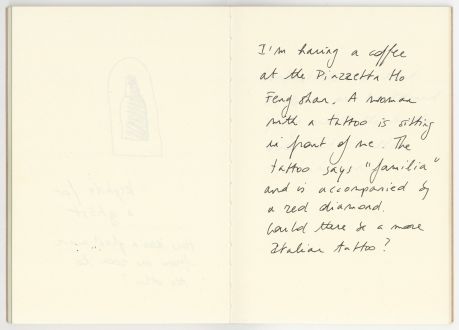 I'm having a coffee
at the Piazzetta Ho
Feng Shan. A woman
with a tattoo is sitting
in front of me. The
tattoo says "familia"
and is accompanied by
a red diamond.
Could there be a more
Italian tattoo?